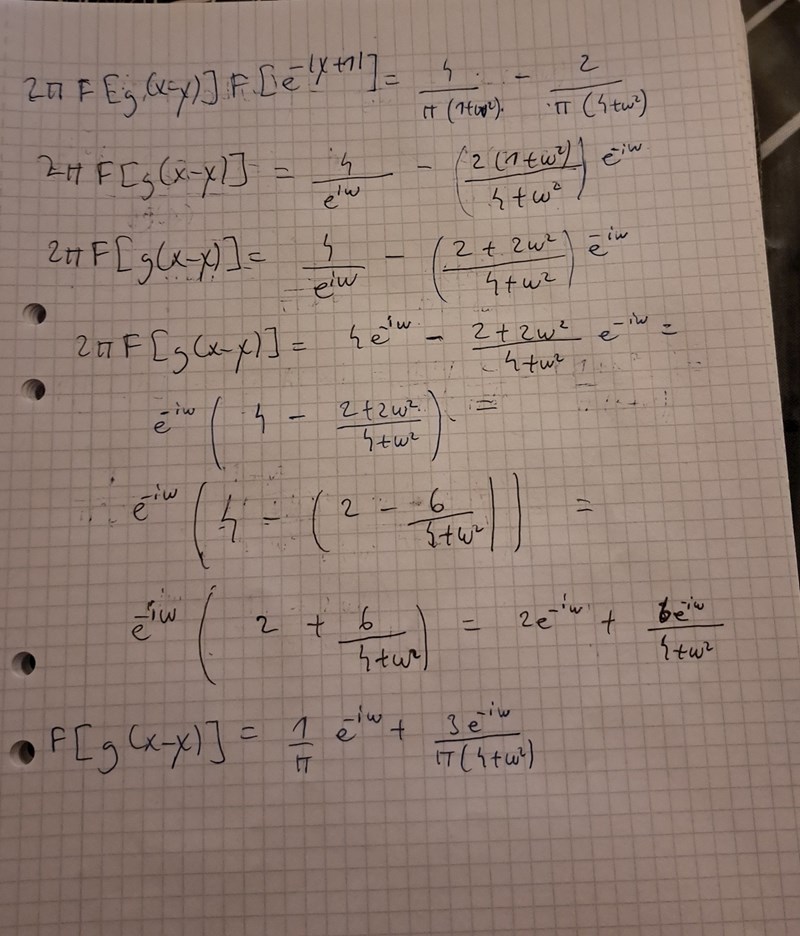 2π F[g(x-y)] F[e^{-|x+1|}] = 4/(π(1+ω²)) - 2/(π(4+ω²))
2π F[g(x-y)] = 4/e^{iω} - (2(1+ω²)/(4+ω²)) e^{-iω}
2π F[g(x-y)] = 4/e^{iω} - ((2+2ω²)/(4+ω²)) e^{-iω}
2π F[g(x-y)] = 4e^{-iω} - (2+2ω²)/(4+ω²) e^{-iω} =
e^{-iω} (4 - (2+2ω²)/(4+ω²)) =
e^{-iω} (4 - (2 - 6/(4+ω²))) =
e^{-iω} (2 + 6/(4+ω²)) = 2e^{-iω} + 6e^{-iω}/(4+ω²)
F[g(x-y)] = 1/π e^{-iω} + 3e^{-iω}/(π(4+ω²))